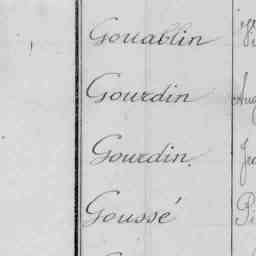 Gouablin
Gourdin
Gourdin.
Goussé